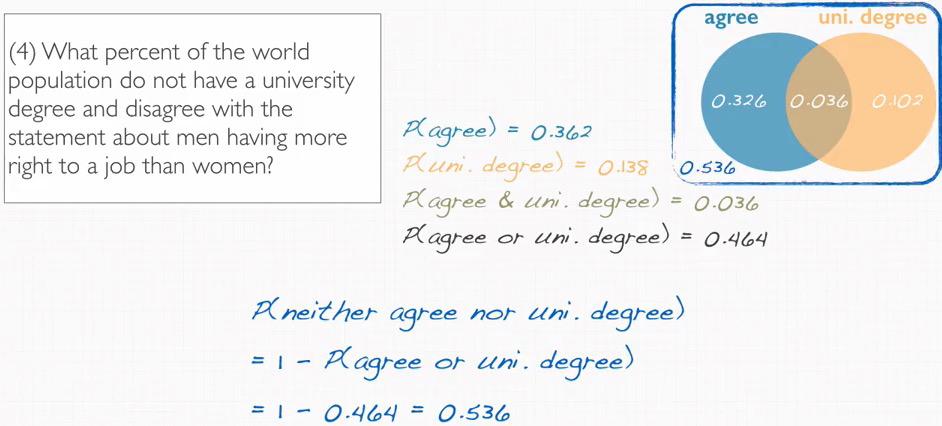 (4) What percent of the world
population do not have a university
degree and disagree with the
statement about men having more
right to a job than women?
agree
uni. degree
0.326
0.036
0.102
0.536
P(agree) = 0.362
P(uni. degree) = 0.138
P(agree & uni. degree) = 0.036
P(agree or uni. degree) = 0.464
P(neither agree nor uni. degree)
= 1 - P(agree or uni. degree)
= 1 - 0.464 = 0.536